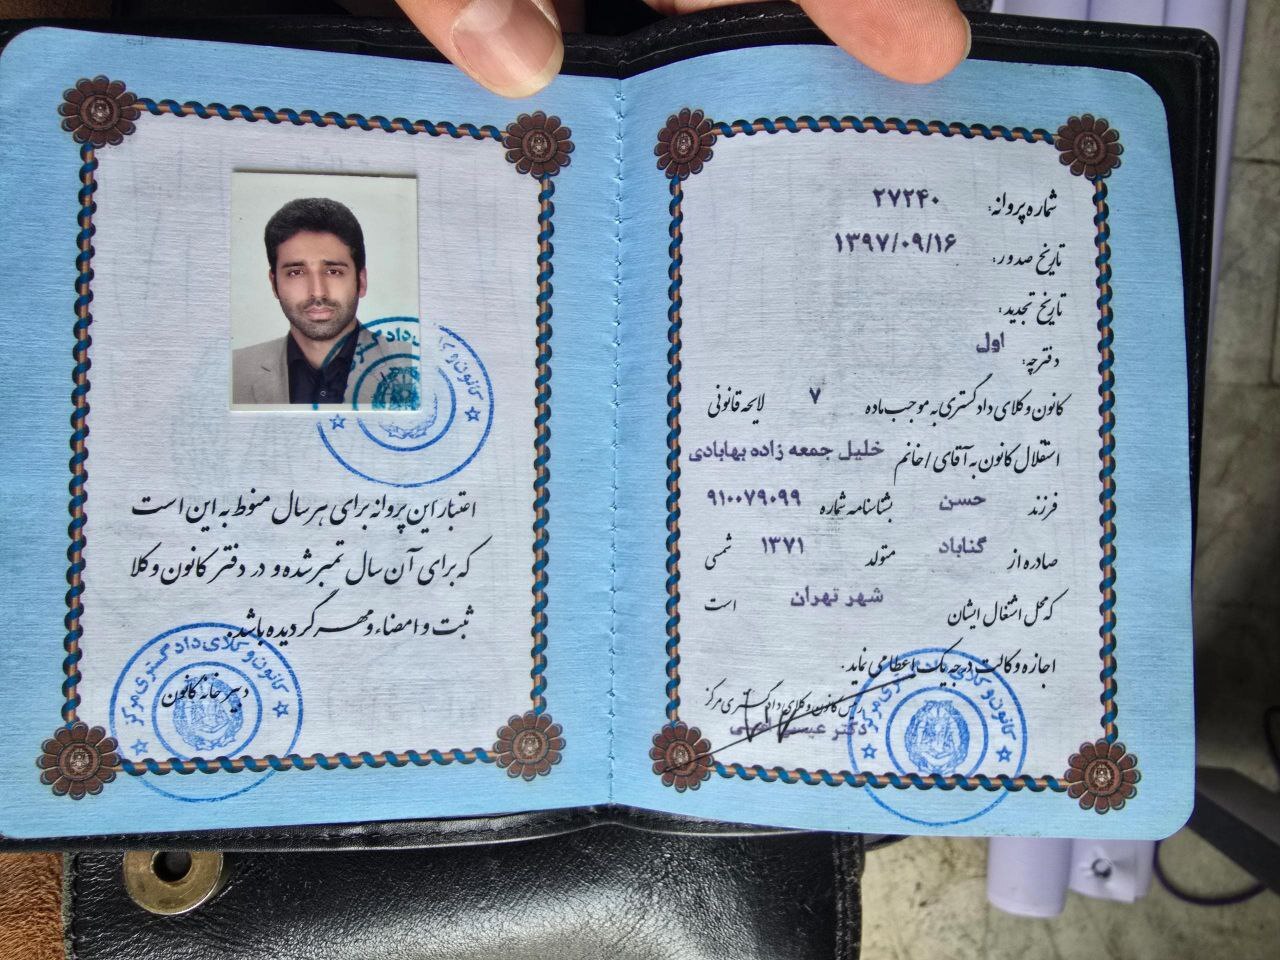 شماره پروانه: ۲۷۲۴۰
تاریخ صدور: ۱۳۹۷/۰۹/۱۶
تاریخ تجدید:
دفترچه: اول
کانون وکلای دادگستری به موجب ماده ۷ لایحه قانونی
استقلال کانون به آقای / خانم خلیل جمعه زاده بهابادی
فرزند حسن بشناسنامه شماره ۹۱۰۰۷۹۰۹۹
صادره از گناباد متولد ۱۳۷۱ شمسی
که محل اشتغال ایشان شهر تهران است
اجازه وکالت درجه یک اعطا می نماید.
رئیس کانون وکلای دادگستری مرکز
دکتر عیسی
کانون وکلای دادگستری مرکز
کانون وکلای دادگستری
اعتبار این پروانه برای هر سال منوط به این است
که برای آن سال تمبر شده و در دفتر کانون وکلا
ثبت و امضاء و مهر گردیده باشد.
دبیرخانه کانون
کانون وکلای دادگستری مرکز